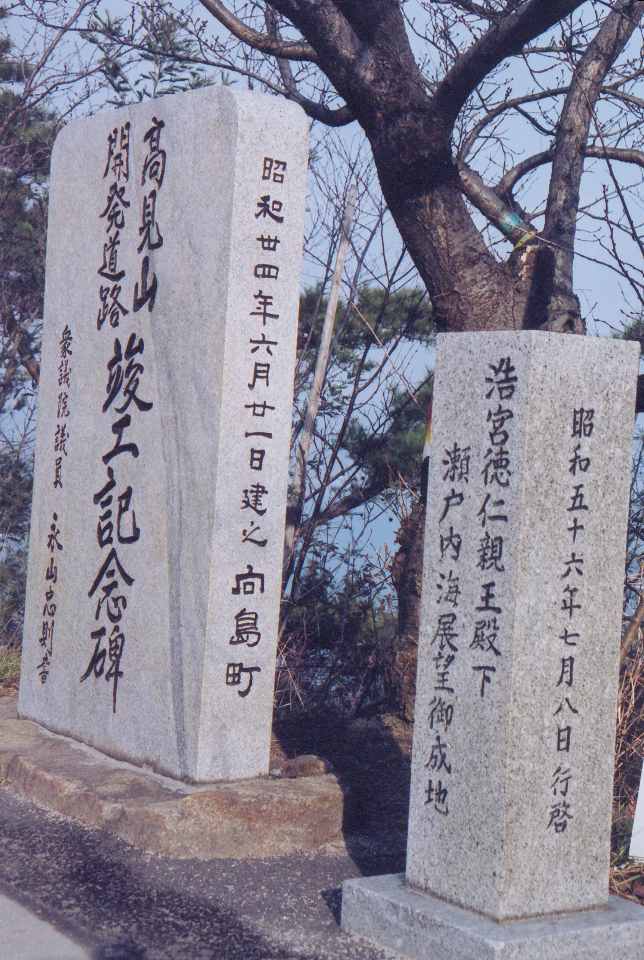 高見山
開発道路
竣工記念碑
衆議院議員 永山忠則書
昭和卌四年六月廿一日建之 向島町
浩宮徳仁親王殿下
瀬戸内海展望御成地
昭和五十六年七月八日 行啓